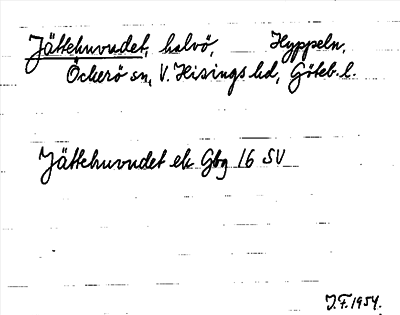 Jättehuvudet, halvö, Hyppeln,
Öckerö sn, V. Hisings hd, Göteb. l.
Jättehuvudet ek Gbg 16 SV
J.F. 1954.